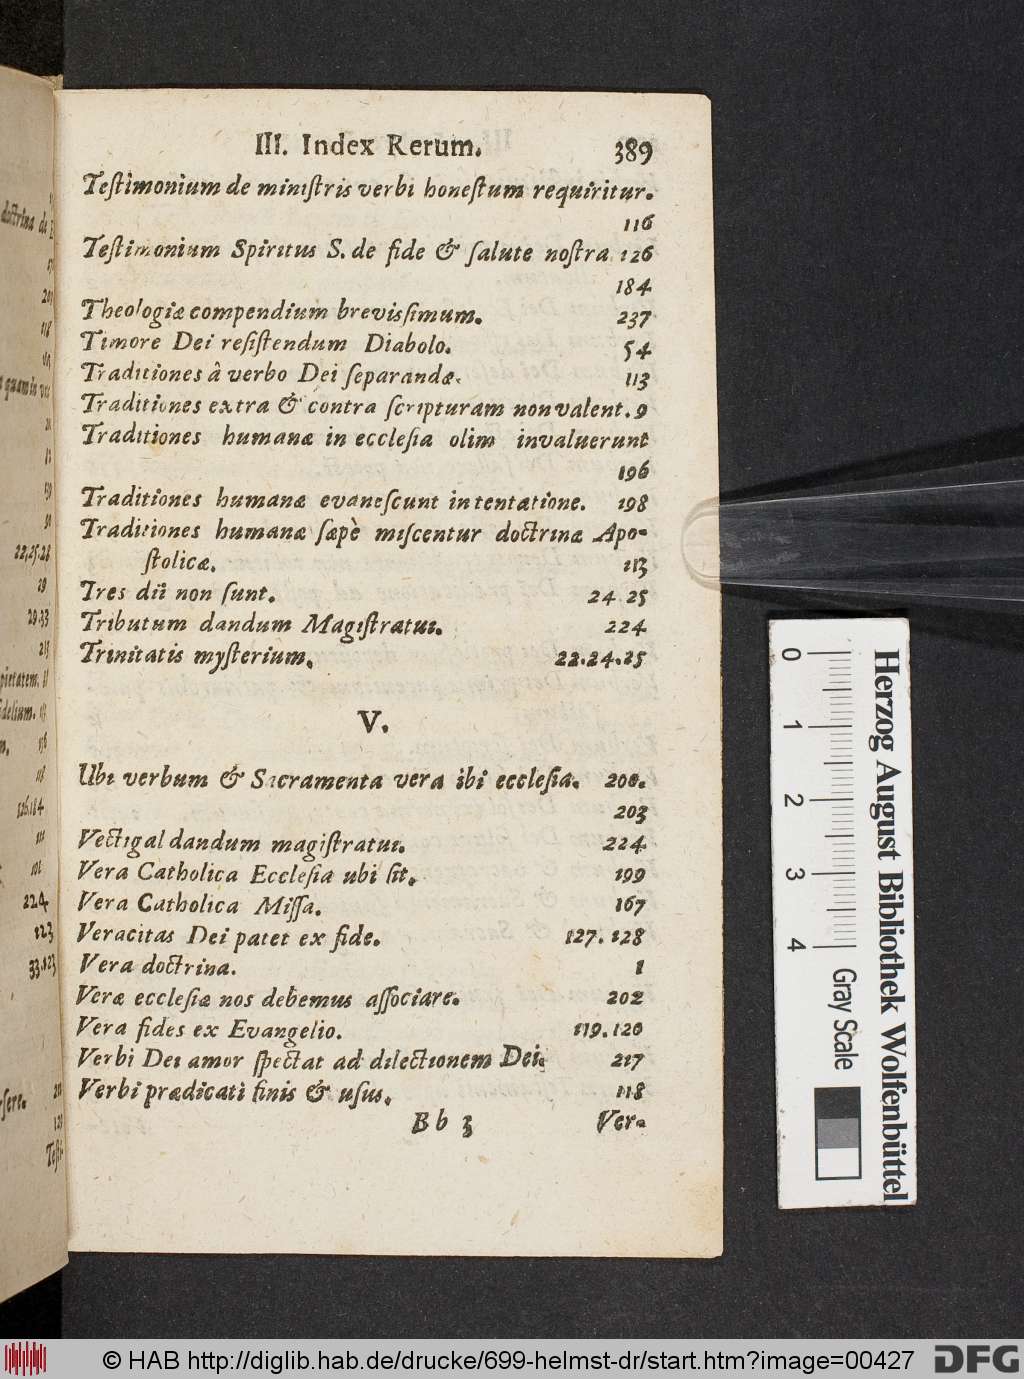 III. Index Rerum. 389
Teſtimonium de miniſtris verbi honeſtum requiritur.
116
Teſtimonium Spiritus S. de fide & ſalute noſtra 126
184
Theologiæ compendium brevisſimum. 237
Timore Dei reſiſtendum Diabolo. 54
Traditiones â verbo Dei ſeparandæ. 113
Traditiones extra & contra ſcripturam non valent. 9
Traditiones humanæ in eccleſia olim invaluerunt
196
Traditiones humanæ evaneſcunt in tentatione. 198
Traditiones humanæ ſæpè miſcentur doctrinæ Apo-
ſtolicæ. 113
Tres dii non ſunt. 24 25
Tributum dandum Magiſtratui. 224
Trinitatis myſterium. 22.24.25
V.
Ubi verbum & Sacramenta vera ibi eccleſia. 200.
203
Vectigal dandum magiſtratui. 224
Vera Catholica Eccleſia ubi ſit. 199
Vera Catholica Miſſa. 167
Veracitas Dei patet ex fide. 127. 128
Vera doctrina. 1
Veræ eccleſiæ nos debemus aſſociare. 202
Vera fides ex Evangelio. 119.120
Verbi Dei amor ſpectat ad dilectionem Dei. 217
Verbi prædicati finis & uſus. 118
B b 3 Ver-
doctrina de
118
quam in
196
22,25.28
29
29.33
215
pietatem. 11
fidelium.
116
118
126.184
111
101
224
123
33.123
Teſti-
0 1 2 3 4
Gray Scale
Herzog August Bibliothek Wolfenbüttel
© HAB http://diglib.hab.de/drucke/699-helmst-dr/start.htm?image=00427
DFG